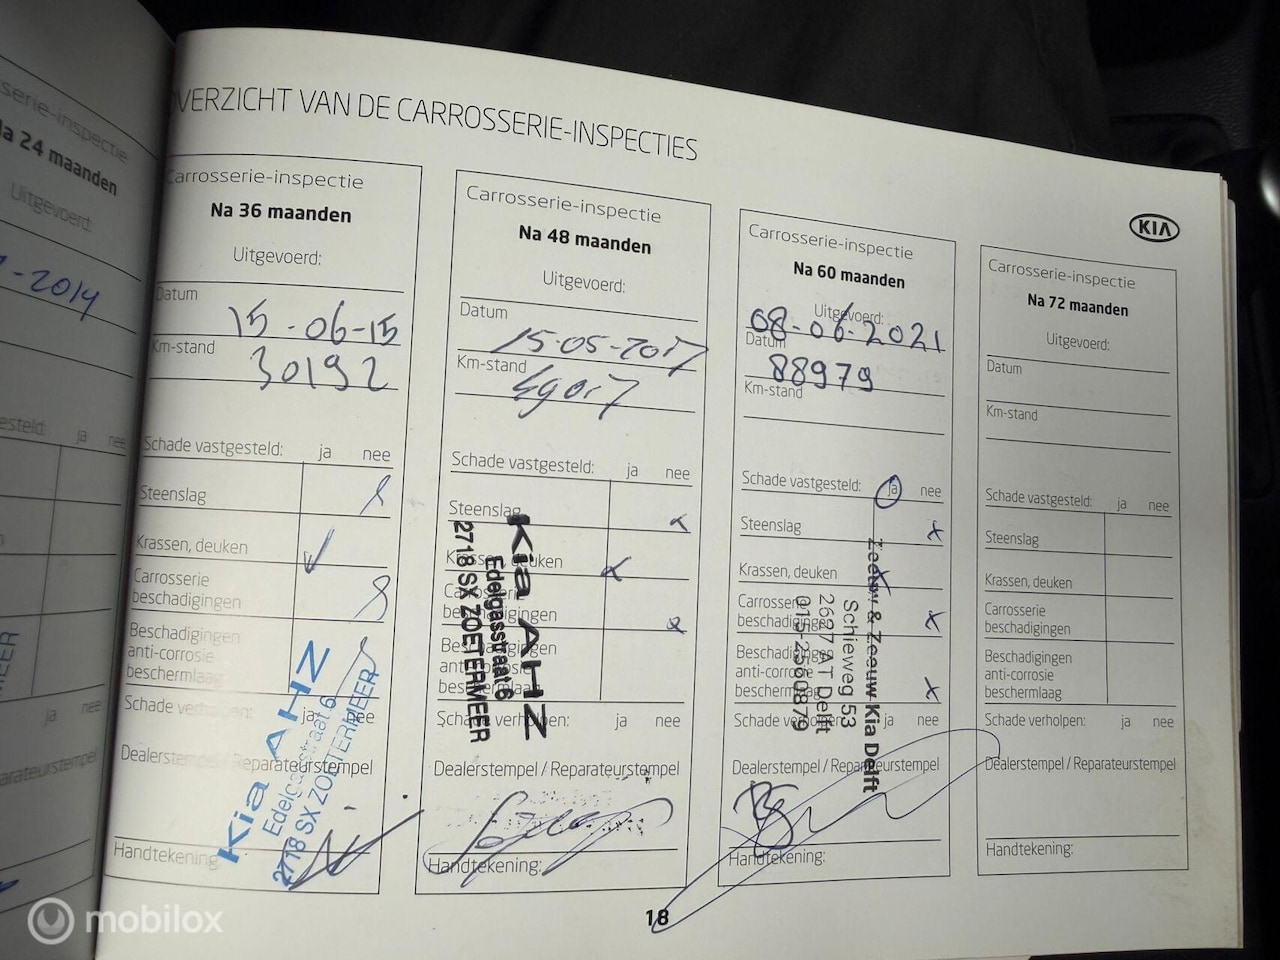 OVERZICHT VAN DE CARROSSERIE-INSPECTIES
serie-inspectie
Na 24 maanden
Uitgevoerd:
-2014
ja nee
ja
Carrosserie-inspectie
Na 36 maanden
Uitgevoerd:
Datum
15-06-15
Km-stand
30192
Schade vastgesteld: ja nee
Steenslag
Krassen, deuken
Carrosserie
beschadigingen
Beschadigingen
anti-corrosie
beschermlaag
Schade verholpen: ja nee
Dealerstempel / Reparateurstempel
Kia AHZ
Edelgasstraat 6
2718 SX ZOETERMEER
Handtekening:
Carrosserie-inspectie
Na 48 maanden
Uitgevoerd:
Datum
15-05-2017
Km-stand
Schade vastgesteld: ja nee
Steenslag
Krassen, deuken
Carrosserie
beschadigingen
Beschadigingen
anti-corrosie
beschermlaag
Schade verholpen: ja nee
Kia AHZ
Edelgasstraat 6
2718 SX ZOETERMEER
Dealerstempel / Reparateurstempel
Handtekening:
Carrosserie-inspectie
Na 60 maanden
Uitgevoerd:
08-06-2021
Datum
88979
Km-stand
Schade vastgesteld: ja nee
Steenslag
Krassen, deuken
Carrosserie
beschadigingen
Beschadigingen
anti-corrosie
beschermlaag
Schade verholpen:
Zeeuw & Zeeuw Kia Delft
Schieweg 53
2627 AT Delft
015-2560879
Dealerstempel / Reparateurstempel
Handtekening:
KIA
Carrosserie-inspectie
Na 72 maanden
Uitgevoerd:
Datum
Km-stand
Schade vastgesteld: ja nee
Steenslag
Krassen, deuken
Carrosserie
beschadigingen
Beschadigingen
anti-corrosie
beschermlaag
Schade verholpen: ja nee
Dealerstempel / Reparateurstempel
Handtekening:
18
mobilox